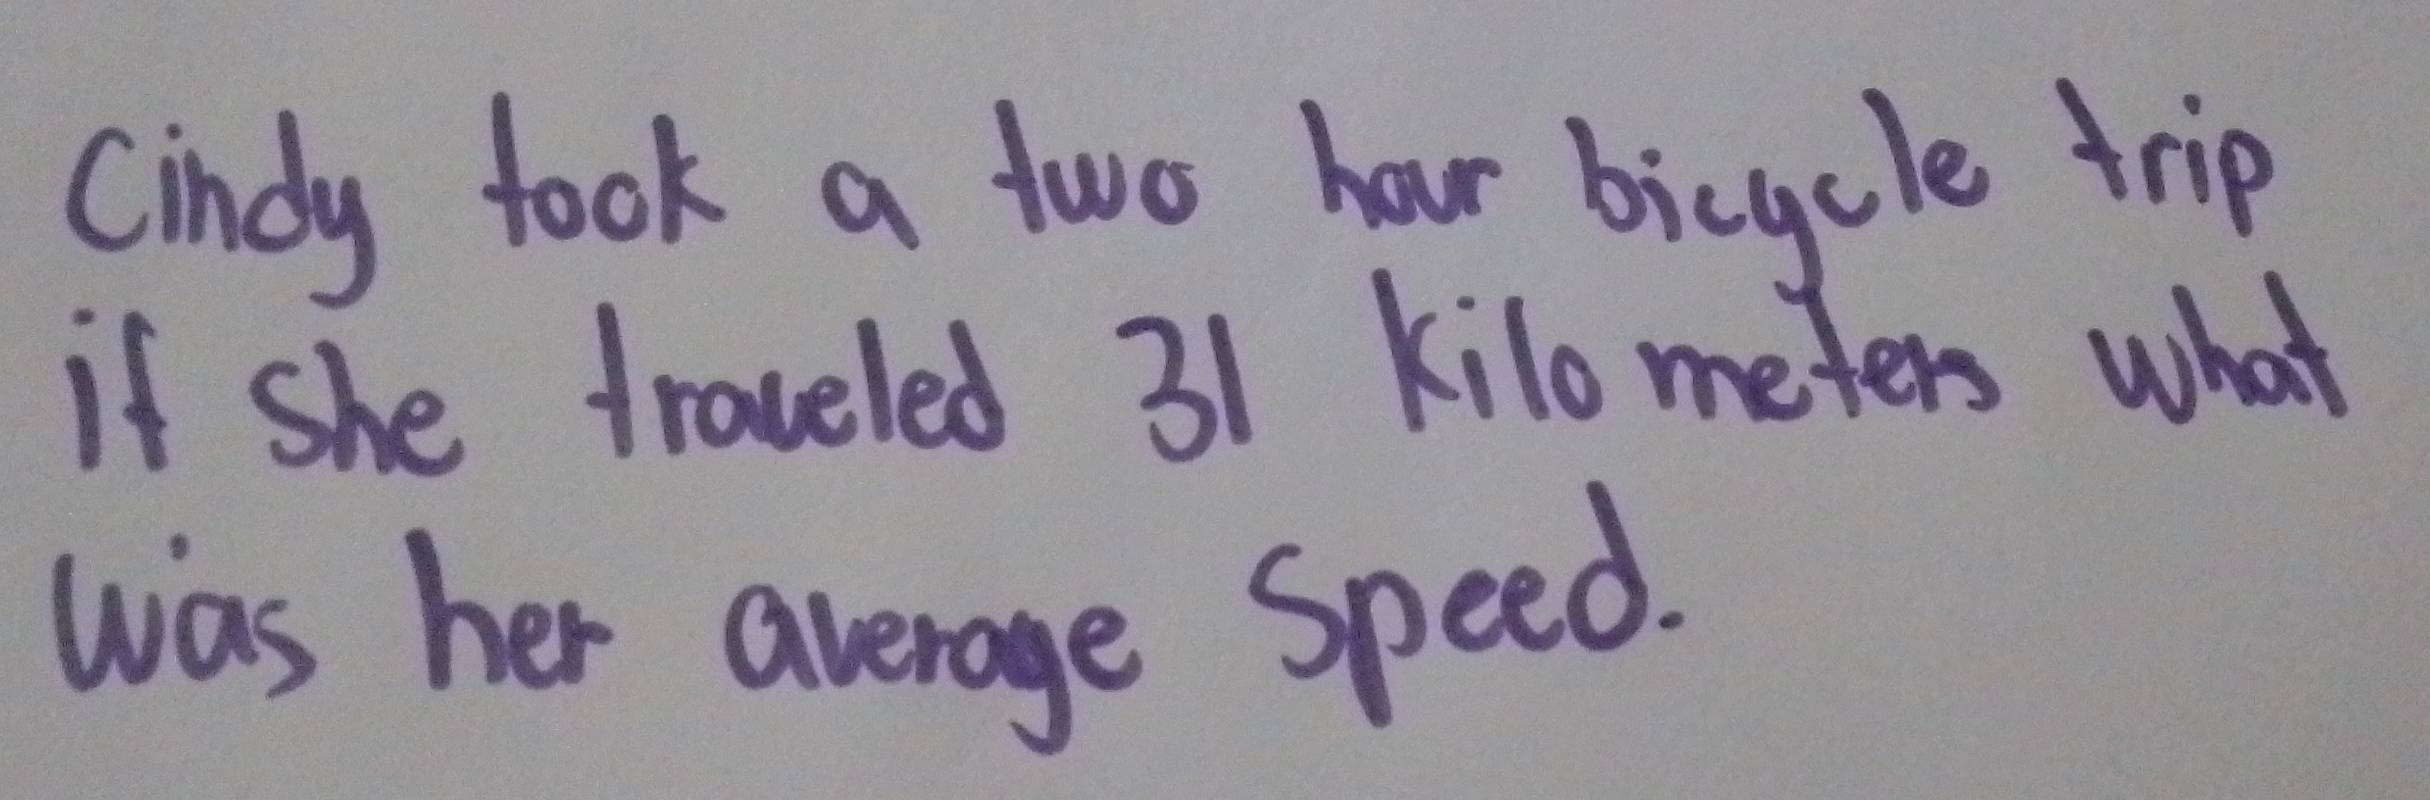 Cindy took a two hour bicycle trip
if she traveled 31 kilometers what
was her average speed.